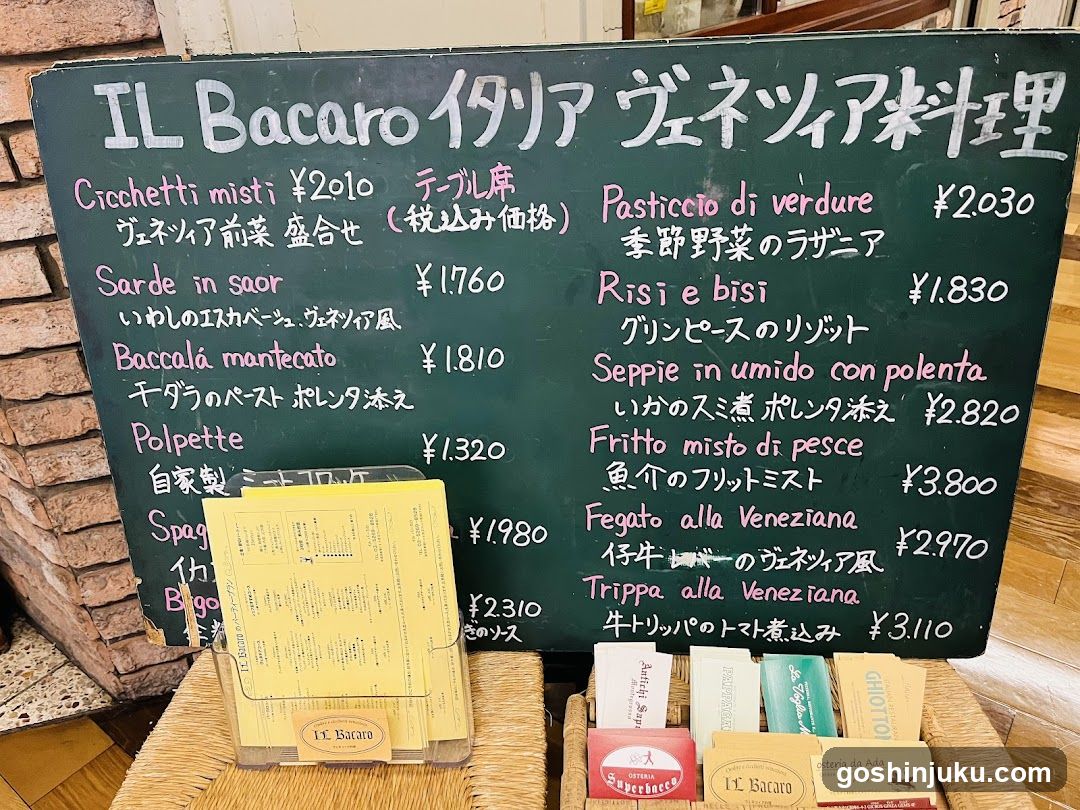 IL Bacaro イタリア ヴェネツィア料理
Cicchetti misti ¥2.010
ヴェネツィア前菜 盛合せ
テーブル席
(税込み価格)
Sarde in saor ¥1.760
いわしのエスカベーシュ、ヴェネツィア風
Baccalá mantecato ¥1.810
干ダラのペースト ポレンタ添え
Polpette ¥1.320
自家製
¥1.980
イカ
¥2.310
ぎのソース
Pasticcio di verdure ¥2.030
季節野菜のラザニア
Risi e bisi ¥1.830
グリンピースのリゾット
Seppie in umido con polenta
いかのスミ煮 ポレンタ添え ¥2.820
Fritto misto di pesce
魚介のフリットミスト ¥3.800
Fegato alla Veneziana
仔牛 レバー のヴェネツィア風 ¥2.970
Trippa alla Veneziana
牛トリッパのトマト煮込み ¥3.110
IL Bacaroのパーティープラン
IL Bacaro
Antichi Sapori
LA Voglia
GHIOTTO
OSTERIA
Superbacco
IL Bacaro
osteria da Ada
goshinjuku.com